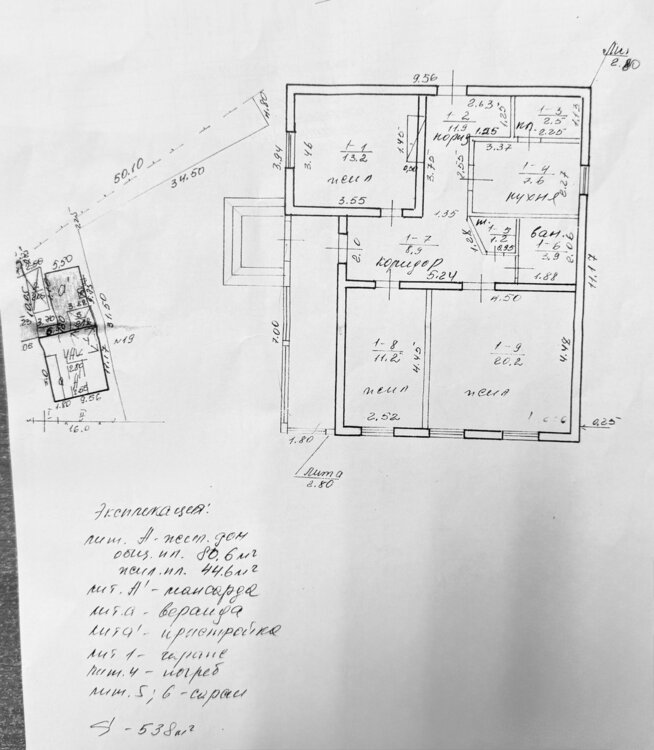 9.56
2.80
4.80
50.10
34.50
3.94
3.46
1-1
13.2
жил
3.55
1.45
0.50
3.75
2.63
1-2
11.9
корид
1.25
1.25
1-3
2.5
кл.
2.25
1.13
3.37
2.55
1-4
7.6
кухня
2.27
1.35
т.
1-5
1.2
0.95
1.28
ван.
1-6
3.9
2.06
1.88
11.17
2.0
1-7
8.9
коридор
5.24
4.50
7.00
1-8
11.2
жил
4.45
2.52
1-9
20.2
жил
4.48
0.25
1.80
Лит а
2.80
5.50
31.50
N19
11.17
9.56
1.80
16.0
Экспликация:
лит. А - жил. дом
общ. пл. 80,6 м²
жил. пл. 44,6 м²
лит. А' - мансарда
лит а - веранда
лит а' - пристройка
лит 1 - гараж
лит. 4 - погреб
лит. 5; 6 - сараи
S - 538 м²